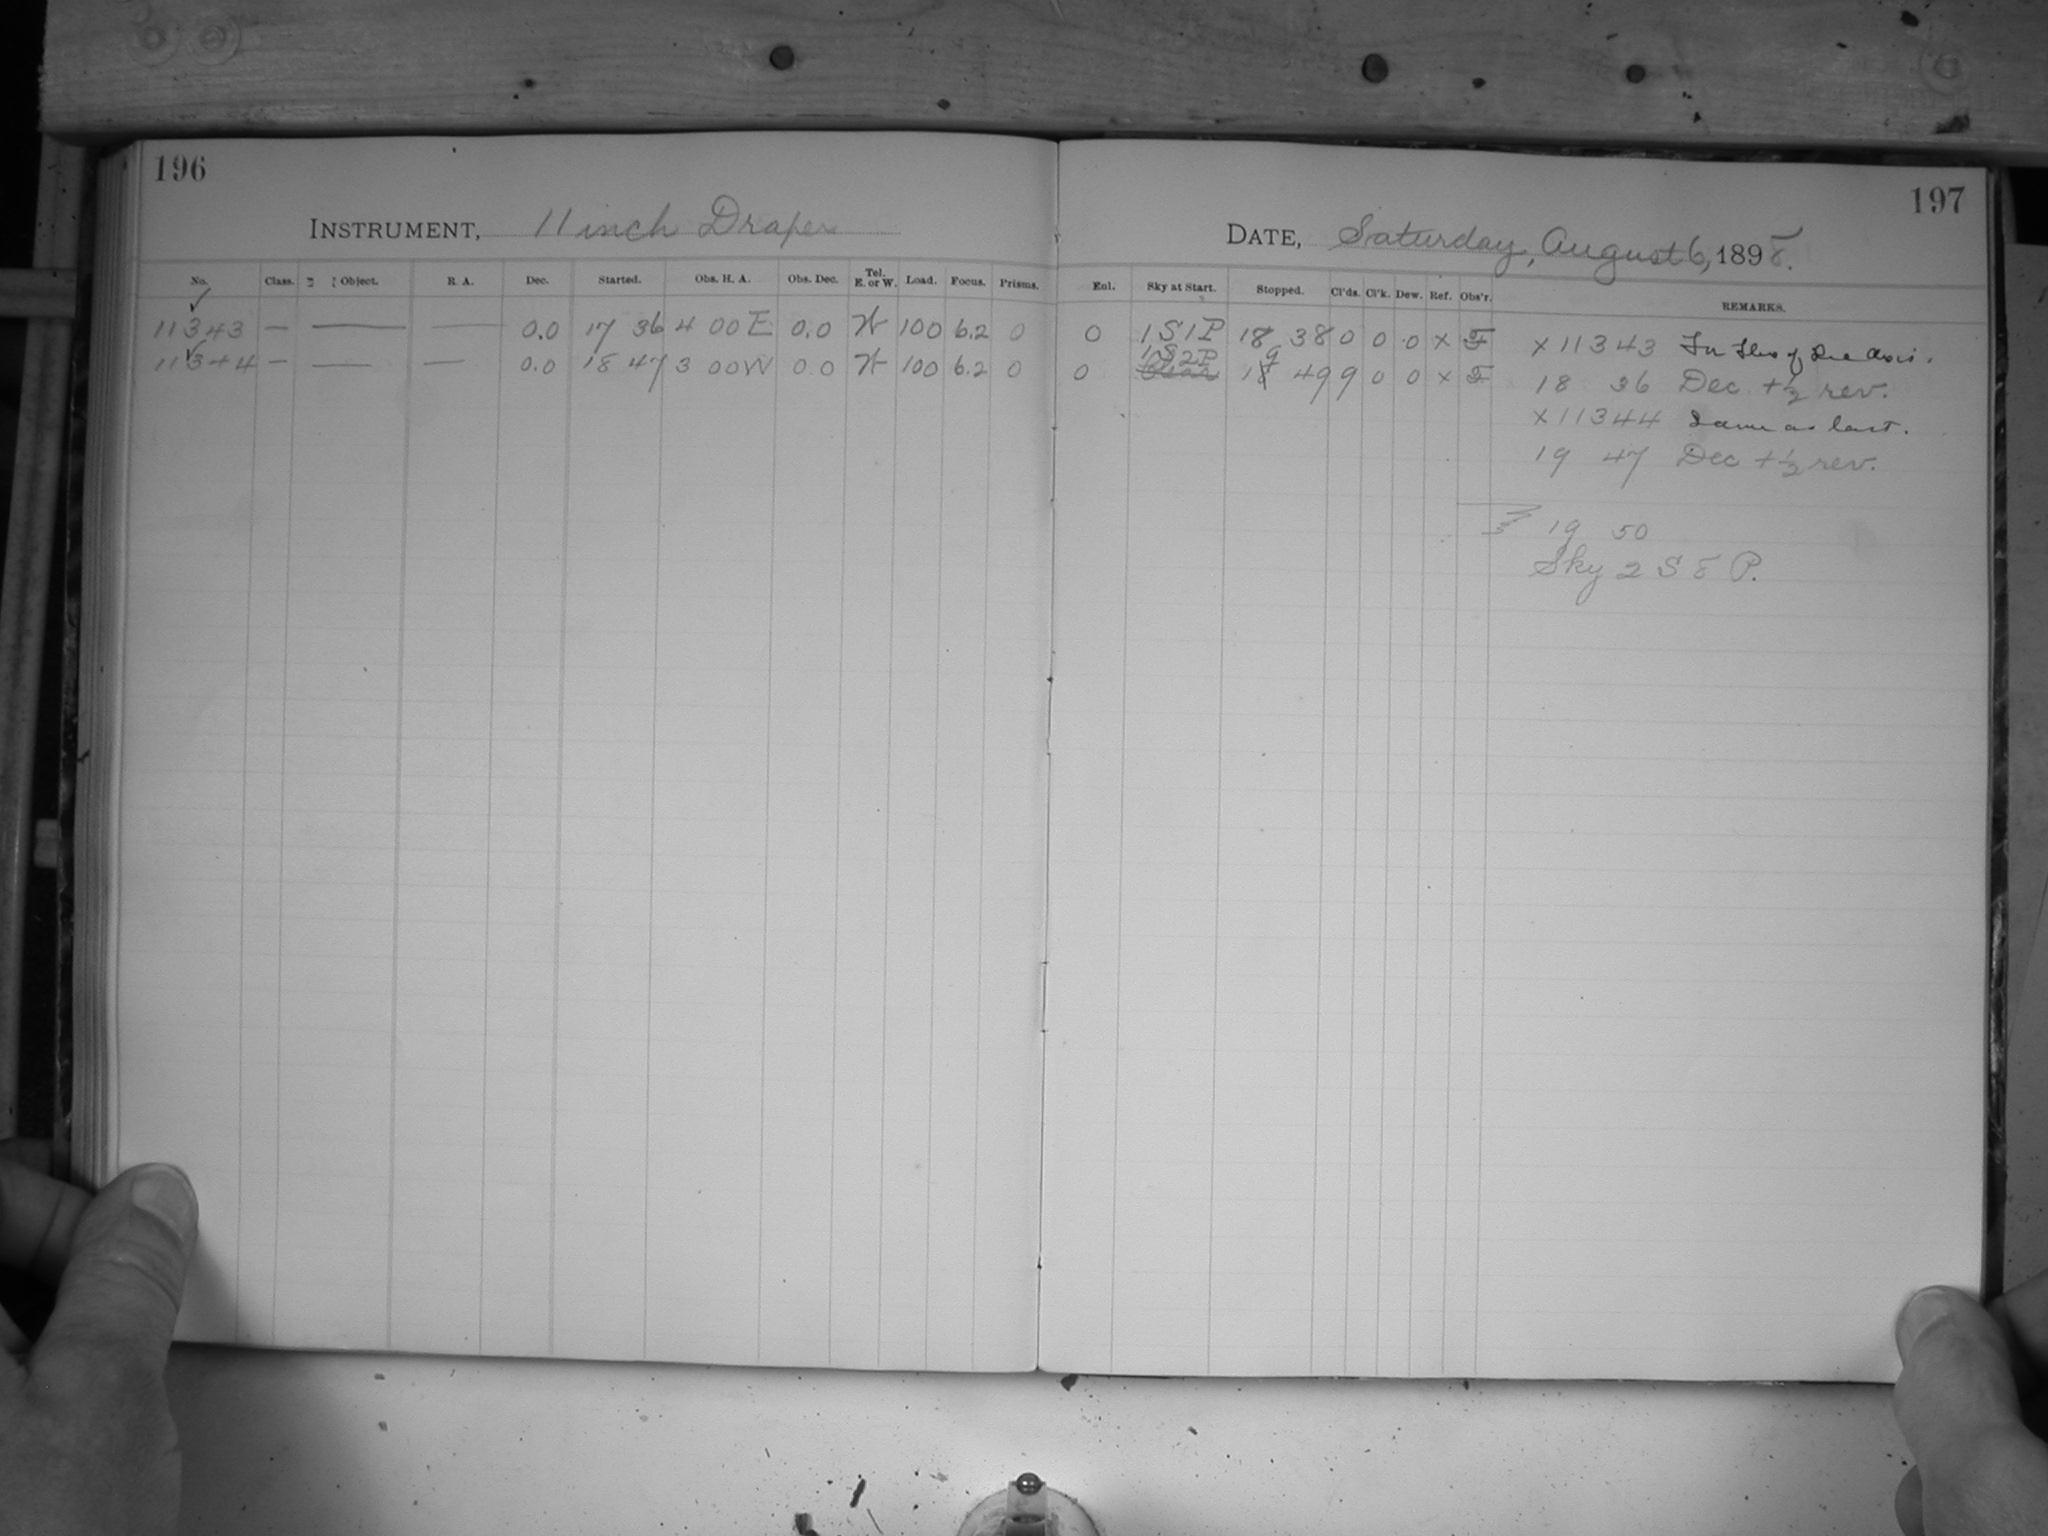 196
INSTRUMENT, 11 inch Draper
No. Class. Object. R. A. Dec. Started. Obs. H. A. Obs. Dec. Tel. E. or W. Load. Focus. Prisms.
11343 — — — 0.0 17 36 4 00 E 0.0 W 100 6.2 0
11344 — — — 0.0 18 47 3 00 W 0.0 W 100 6.2 0
197
DATE, Saturday, August 6, 1898.
Enl. Sky at Start. Stopped. Cl'ds. Cl'k. Dew. Ref. Obs'r. REMARKS.
0 1S1P 18 38 0 0 0 x F
0 1S2P 19 49 9 0 0 x F
x 11343 of
18 36 Dec. + ½ rev.
x 11344 Same as last.
19 47 Dec + ½ rev.
19 50
Sky 2 S 8 P.